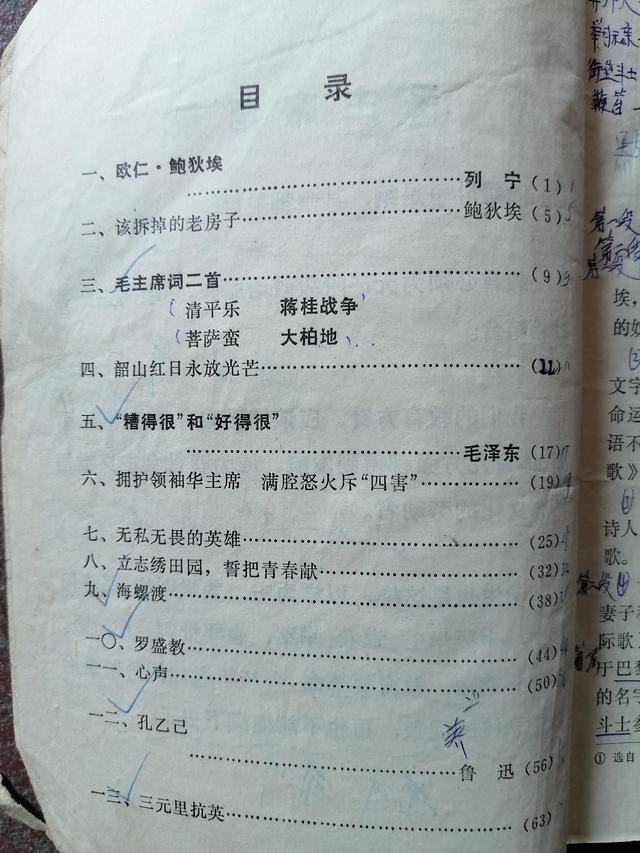 目 录
一、欧仁·鲍狄埃
……………………………列 宁 (1)
二、该拆掉的老房子……………………………鲍狄埃 (5)
三、毛主席词二首……………………………(9)
(清平乐 蒋桂战争)
(菩萨蛮 大柏地)
四、韶山红日永放光芒……………………………(11)
五、“糟得很”和“好得很”
……………………………毛泽东 (17)
六、拥护领袖华主席 满腔怒火斥“四害”……………(19)
七、无私无畏的英雄……………………………(25)
八、立志绣田园，誓把青春献……………………………(32)
九、海螺渡……………………………(38)
一〇、罗盛教……………………………(44)
一一、心声……………………………(50)
一二、孔乙己
……………………………鲁 迅 (56)
一三、三元里抗英……………………………(63)
第一段
埃，
的如
文字
命运
语不
歌》
诗人
歌。
妻子和
际歌
于巴黎
的名字
斗士
① 选自